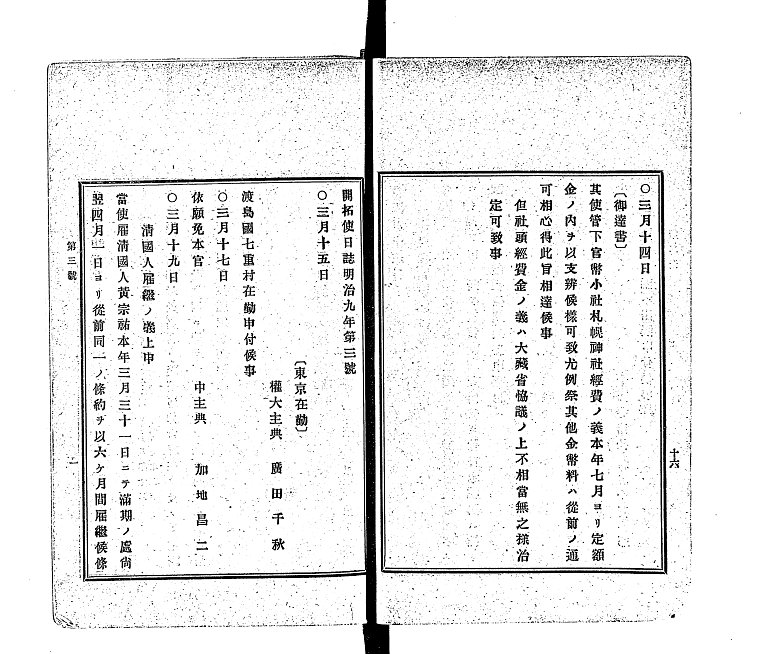 十六
〇三月十四日
〔御達書〕
其使管下官幣小社札幌神社經費ノ義本年七月ヨリ定額
金ノ内ヲ以支辨候樣可致尤例祭其他金幣料ハ從前ノ通
可相心得此旨相達候事
但社頭經費金ノ義ハ大藏省協議ノ上不相當無之樣治
定可致事
開拓使日誌明治九年第三號
〇三月十五日
〔東京在勤〕
權大主典 廣田千秋
渡島國七重村在勤申付候事
〇三月十七日
中主典 加地昌二
依願免本官
〇三月十九日
清國人雇繼ノ義上申
當使雇清國人黃宗祐本年三月三十一日ニテ滿期ノ處尙
翌四月一日ヨリ從前同一ノ條約ヲ以六ケ月間雇繼候條
第三號
一